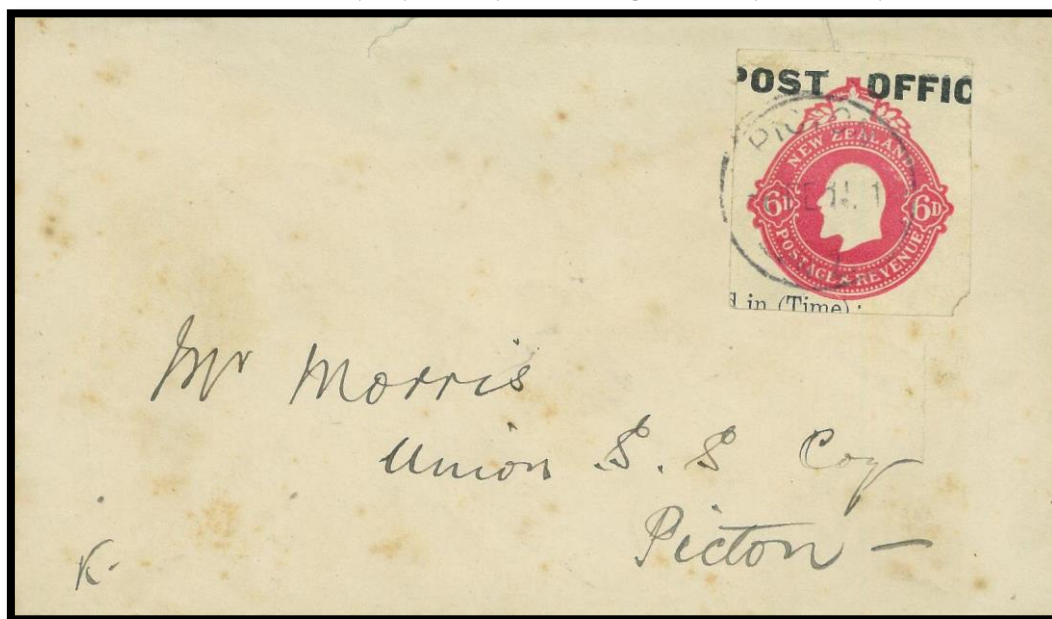 POST OFFIC
NEW ZEALAND
6D 6D
POSTAGE & REVENUE
d in (Time) :
Mr Morris
Union S. S Coy
Picton —
K.